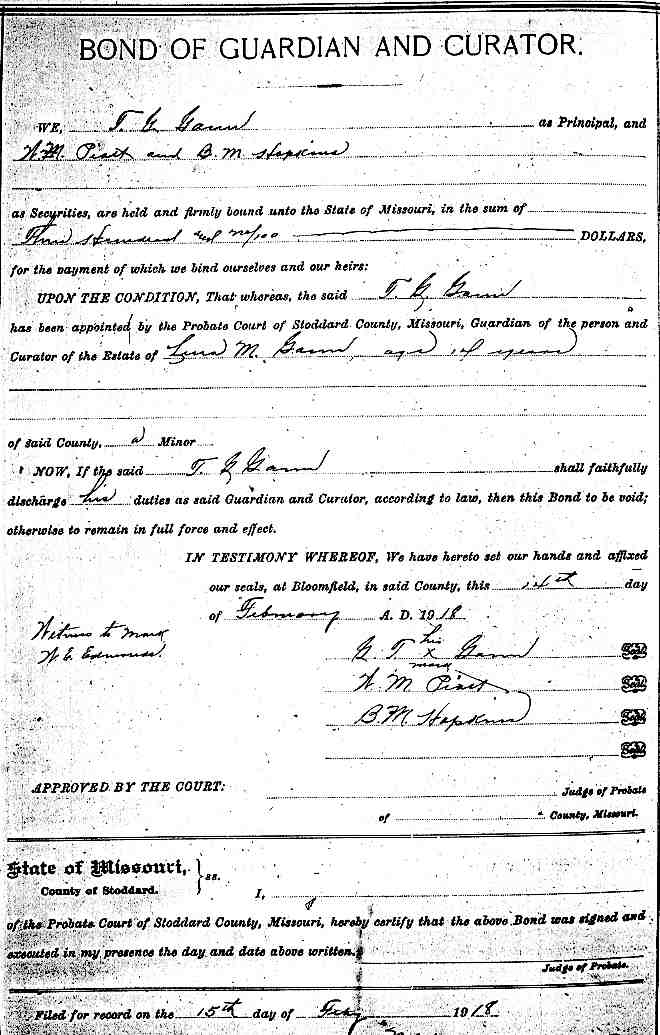 BOND OF GUARDIAN AND CURATOR.
WE, T. G. Gann as Principal, and
W. M. Piatt and B. M. Hopkins
as Securities, are held and firmly bound unto the State of Missouri, in the sum of
Hundred and no/100 DOLLARS,
for the payment of which we bind ourselves and our heirs:
UPON THE CONDITION, That whereas, the said T. G. Gann
has been appointed by the Probate Court of Stoddard County, Missouri, Guardian of the person and
Curator of the Estate of M. Gann, age 14 years
of said County, a Minor
NOW, If the said T. G. Gann shall faithfully
discharge his duties as said Guardian and Curator, according to law, then this Bond to be void;
otherwise to remain in full force and effect.
IN TESTIMONY WHEREOF, We have hereto set our hands and affixed
our seals, at Bloomfield, in said County, this 14th day
of February A. D. 1918
Witness to mark
W. E. Edmonds.
his
G. T. x Gann Seal
mark
W. M. Piatt Seal
B. M. Hopkins Seal
Seal
APPROVED BY THE COURT:
Judge of Probate
of County, Missouri.
State of Missouri, } ss.
County of Stoddard.
I,
of the Probate Court of Stoddard County, Missouri, hereby certify that the above Bond was signed and
executed in my presence the day and date above written.
Judge of Probate.
Filed for record on the 15th day of Feby 1918